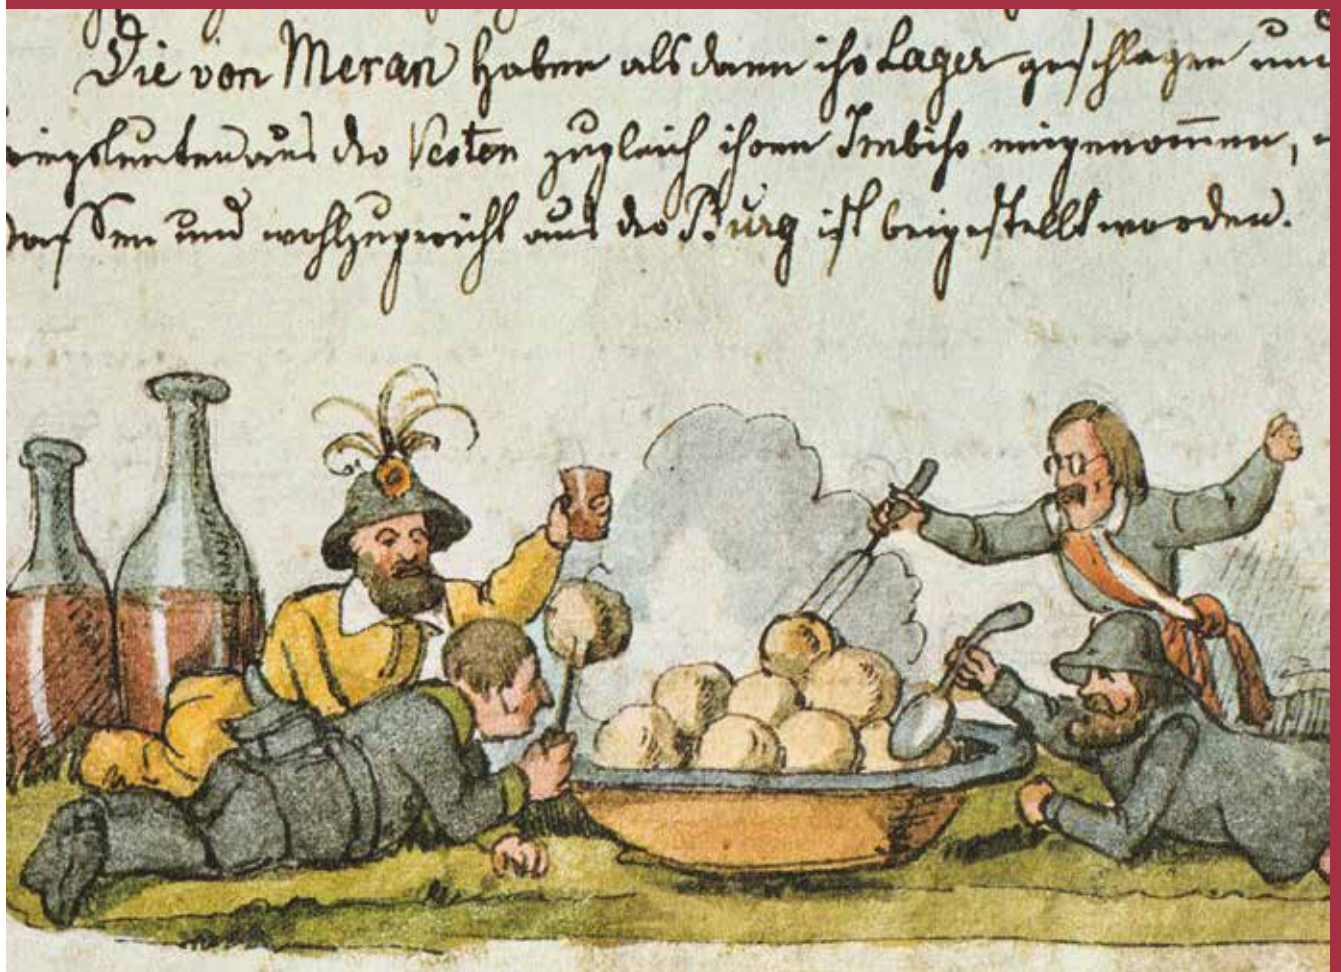 Die von Meran haben als dann ihr Lager geschlagen un
iegsleuten aus der Vesten zugleich ihren Imbiß eingenom̄en,
und wohlzugericht aus der Burg ist beigestellt worden.